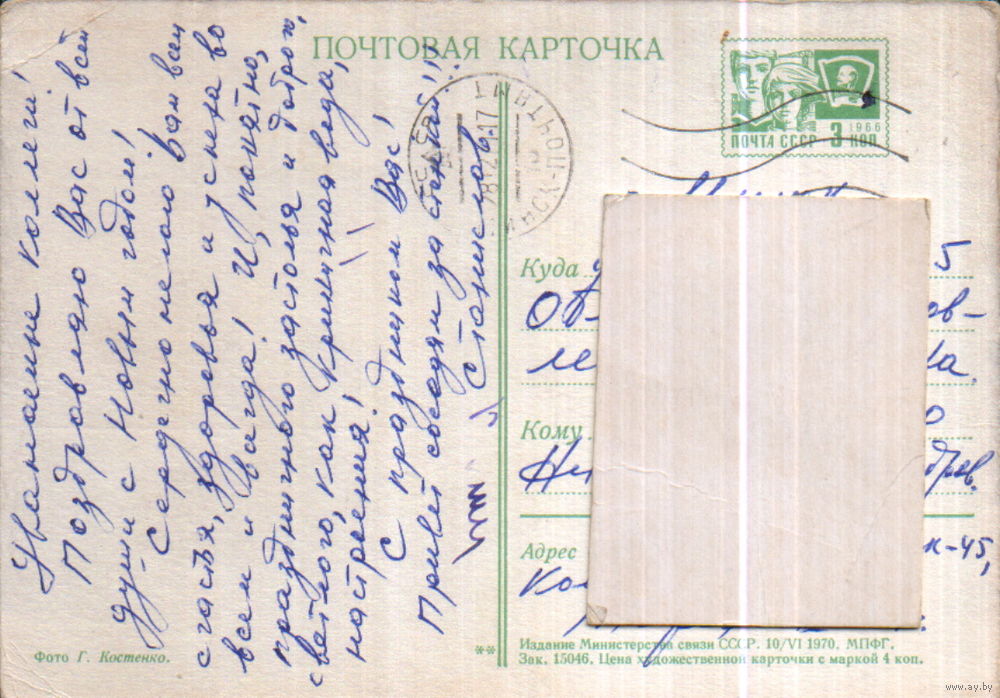 ПОЧТОВАЯ КАРТОЧКА
ПОЧТА СССР 3 КОП
1966
Уважаемые коллеги!
Поздравляю Вас от всей
души с Новым годом!
Сердечно желаю Вам всем
счастья, здоровья и успеха во
всем и всегда! И, понятно,
праздничного застолья и доброго,
светлого, как Криничная вода,
настроения!
С праздником Вас!
Привет соседям за стеной!!!
Станислав
Куда
5
Об
ов-
ле
ка
Кому
Не
Адрес
к-45,
Ко
Фото Г. Костенко.
**
Издание Министерства связи СССР. 10/VI 1970. МПФГ.
Зак. 15046. Цена художественной карточки с маркой 4 коп.
www.ay.by